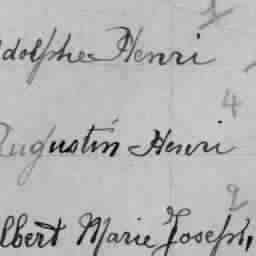 dolphe Henri
4
Augustin Henri
2
lbert Marie Joseph,